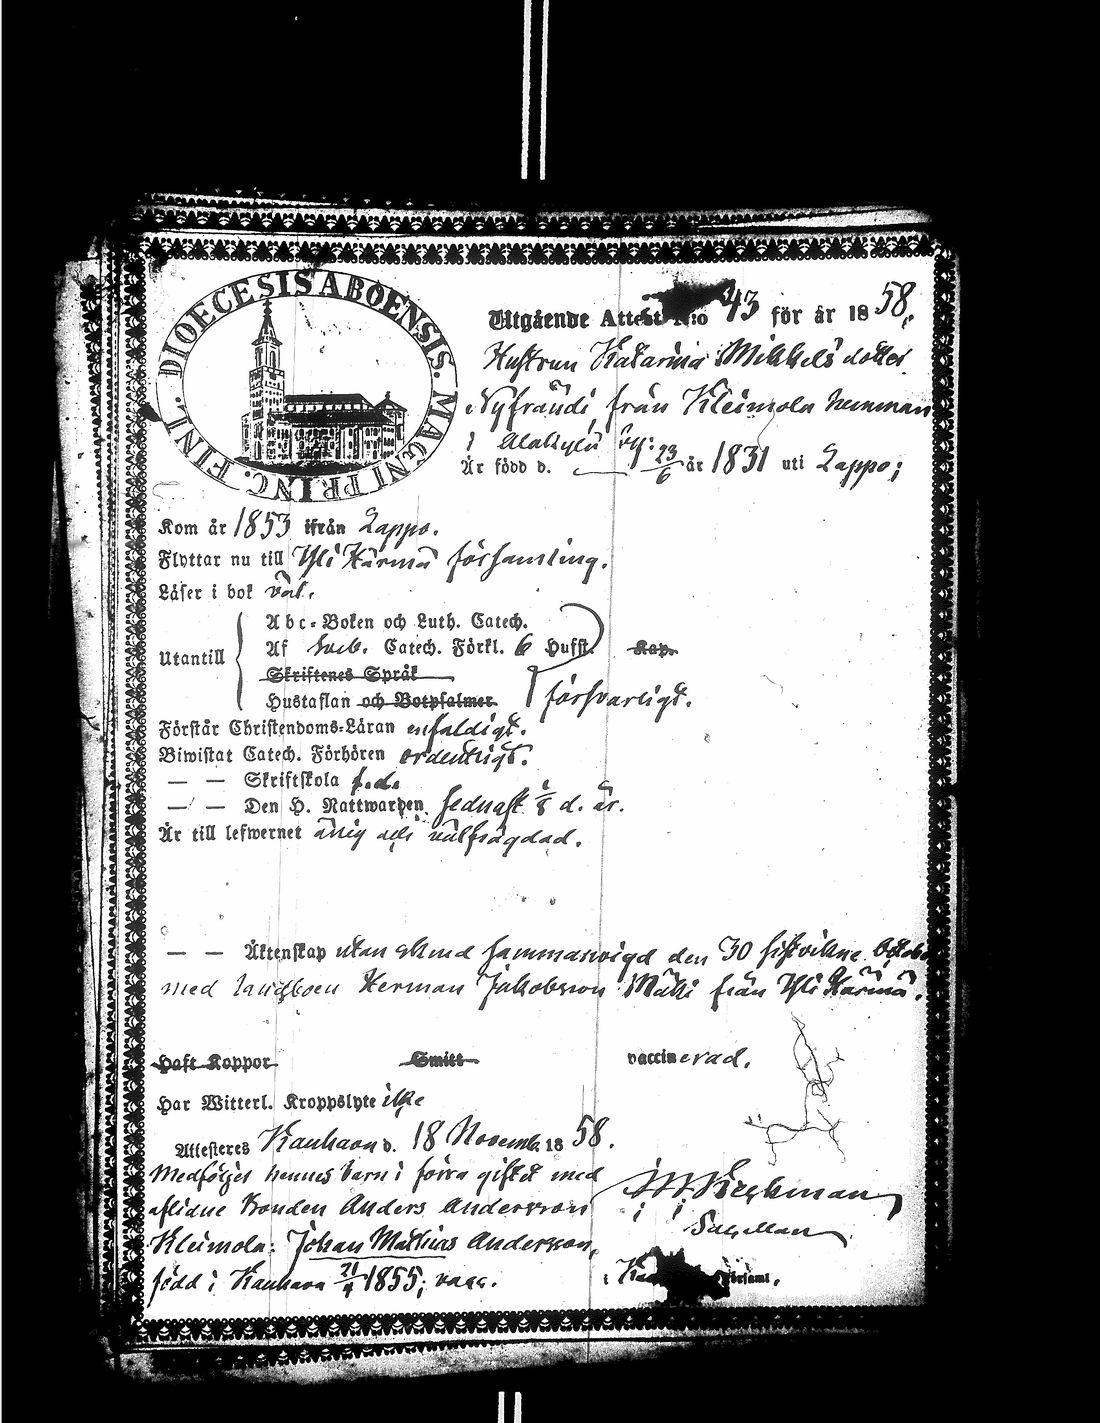 DIOECESIS ABOENSIS. MAGNI PRINC. FINL.
Utgående Attest N:o 43 för år 1858.
Hustrun Katarina Mikkelsdotter
Nyfrändi från Kleimola hemman
i Alakylä by: 
Är född d. 23/6 år 1831 uti Lappo;
Kom år 1853 ifrån Lappo.
Flyttar nu till Yli Härmä församling.
Läser i bok väl.
Abc-Boken och Luth. Catech.
Utantill Af Sveb. Catech. Förkl. 6 Hufst. Kap.
Skriftenes Språk
Hustaflan och Botpsalmer försvarligt.
Förstår Christendoms-Läran enfaldigt.
Biwistat Catech. Förhören ordentligt.
— — Skriftskola s.d.
— — Den H. Nattwarden sednast 1/8 d. år.
Är till lefwernet ärlig och välfrägdad.
— — Äktenskap utan sammanvigd den 30 sistvikne Octobe
med landboen Herman Jakobsson Mäki från Yli Härmä.
Haft Koppor Smitt vaccinerad.
Har Witterl. Kroppslyte icke
Attesteres Kauhava d. 18 Novemb. 1858.
Medföljer hennes barn i förra giftet med
aflidne Bonden Anders Andersson
Kleimola: Johan Mathias Andersson,
född i Kauhava 21/4 1855; vacc.
Sacellan
i Församl.